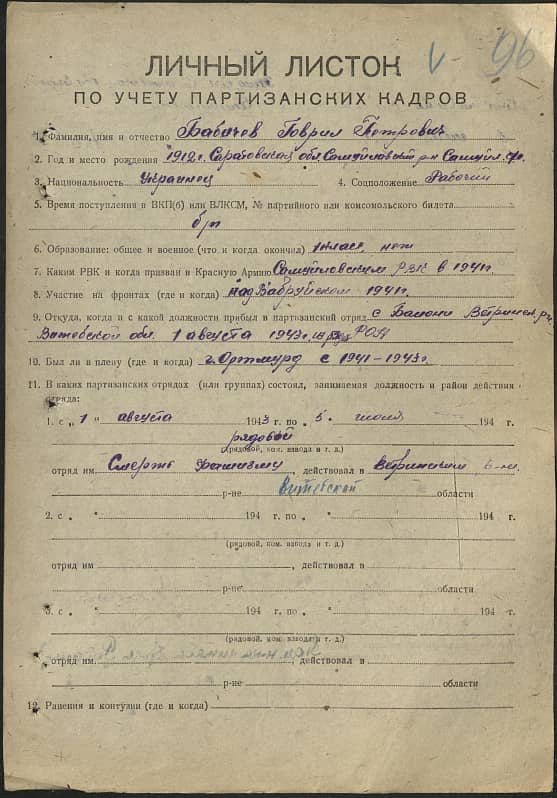 V- 96
ЛИЧНЫЙ ЛИСТОК
ПО УЧЕТУ ПАРТИЗАНСКИХ КАДРОВ
1. Фамилия, имя и отчество Бабичев Гаврил Петрович
2. Год и место рождения 1912 г. Саратовская обл. Самойловский р-н
3. Национальность Украинец 4. Соцположение Рабочий
5. Время поступления в ВКП(б) или ВЛКСМ, № партийного или комсомольского билета
б/п
6. Образование: общее и военное (что и когда окончил) 1 класс, нет
7. Каким РВК и когда призван в Красную Армию Самойловским РВК в 1941 г.
8. Участие на фронтах (где и когда) над Бабруйском 1941 г.
9. Откуда, когда и с какой должности прибыл в партизанский отряд с
Витебской обл. 1 августа 1943 г. из РОА
10. Был ли в плену (где и когда) г. Ортмурд с 1941-1943 г.
11. В каких партизанских отрядах (или группах) состоял, занимаемая должность и район действия
отряда:
1. с „ 1 “ августа 1943 г. по „ 5 “ июля 194 г.
рядовой
(рядовой, ком. взвода и т. д.)
отряд им. Смерть фашизму, действовал в Ветринский р-н
р-не Витебской области
2. с „ “ 194 г. по „ “ 194 г.
(рядовой, ком. взвода и т. д.)
отряд им , действовал в
р-не области
3. с „ “ 194 г. по „ “ 194 г.
(рядовой, ком. взвода и т. д.)
отряд им. , действовал в
р-не области
12. Ранения и контузии (где и когда)